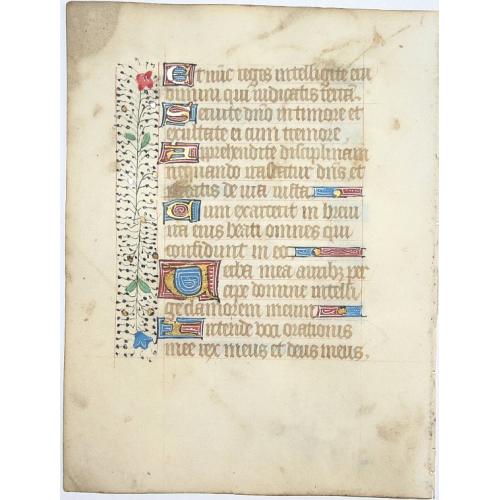 Et nūc reges intelligite eru
dimini qui iudicatis terrā.
Seruite dn̄o in timore et
exultate ei cum tremore
Apprehendite disciplinam
nequando irascatur dn̄s et
pereatis de uia iusta
Cum exarserit in breui
ira eius beati omnes qui
confidunt in eo
Verba mea auribꝫ per
cipe domine intelli
ge clamorem meum
Intende voci orationis
mee rex meus et deus meus.